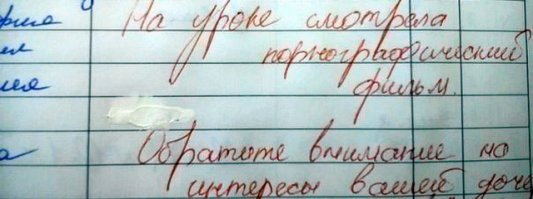 На уроке смотрела
порнографический
фильм.
Обратите внимание на
интересы вашей доче